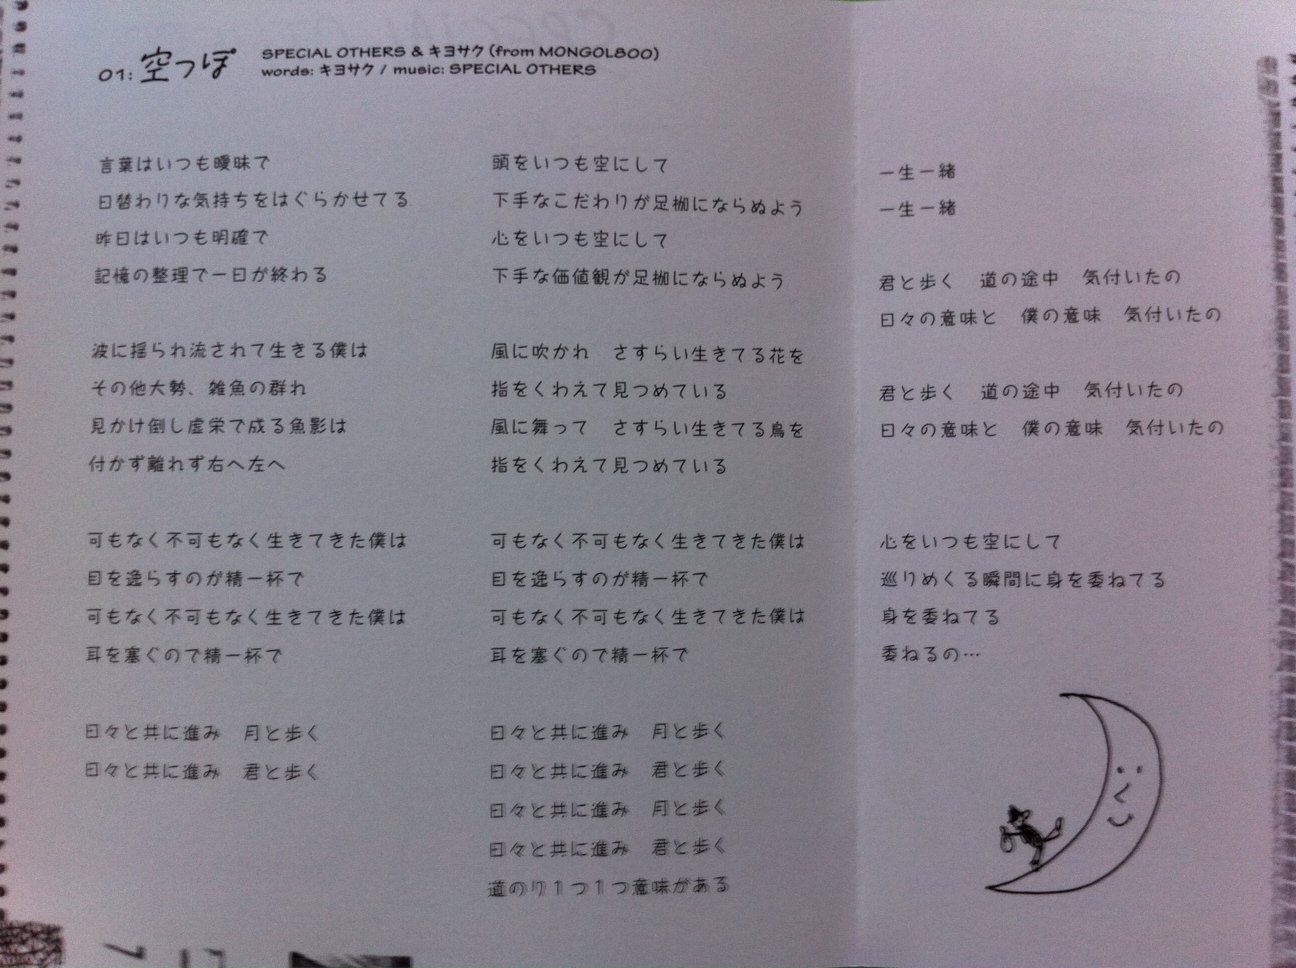 01: 空っぽ
SPECIAL OTHERS & キヨサク (from MONGOL800)
words: キヨサク / music: SPECIAL OTHERS
言葉はいつも曖昧で
日替わりな気持ちをはぐらかせてる
昨日はいつも明確で
記憶の整理で一日が終わる
波に揺られ流されて生きる僕は
その他大勢、雑魚の群れ
見かけ倒し虚栄で成る魚影は
付かず離れず右へ左へ
可もなく不可もなく生きてきた僕は
目を逸らすのが精一杯で
可もなく不可もなく生きてきた僕は
耳を塞ぐので精一杯で
日々と共に進み　月と歩く
日々と共に進み　君と歩く
頭をいつも空にして
下手なこだわりが足枷にならぬよう
心をいつも空にして
下手な価値観が足枷にならぬよう
風に吹かれ　さすらい生きてる花を
指をくわえて見つめている
風に舞って　さすらい生きてる鳥を
指をくわえて見つめている
可もなく不可もなく生きてきた僕は
目を逸らすのが精一杯で
可もなく不可もなく生きてきた僕は
耳を塞ぐので精一杯で
日々と共に進み　月と歩く
日々と共に進み　君と歩く
日々と共に進み　月と歩く
日々と共に進み　君と歩く
道のり1つ1つ意味がある
一生一緒
一生一緒
君と歩く　道の途中　気付いたの
日々の意味と　僕の意味　気付いたの
君と歩く　道の途中　気付いたの
日々の意味と　僕の意味　気付いたの
心をいつも空にして
巡りめくる瞬間に身を委ねてる
身を委ねてる
委ねるの…